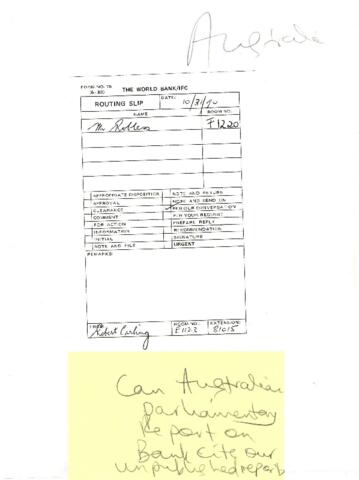 Australia
FORM NO. 75
THE WORLD BANK/IFC
ROUTING SLIP
DATE: 10/31/90
NAME
ROOM NO.
Mr Robless
F1220
APPROPRIATE DISPOSITION
NOTE AND RETURN
APPROVAL
NOTE AND SEND ON
CLEARANCE
PER OUR CONVERSATION
COMMENT
PER YOUR REQUEST
FOR ACTION
PREPARE REPLY
INFORMATION
RECOMMENDATION
INITIAL
SIGNATURE
NOTE AND FILE
URGENT
REMARKS:
FROM:
ROOM NO.:
EXTENSION:
Robert Carling
E1123
81015
Can Australian
parliamentary
Report on
Bank cite our
unpublished reports